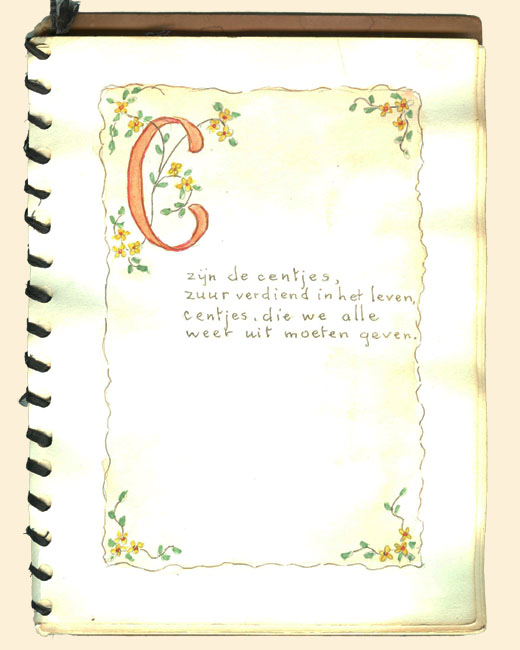 C
zijn de centjes,
zuur verdiend in het leven,
centjes, die we alle
weer uit moeten geven.